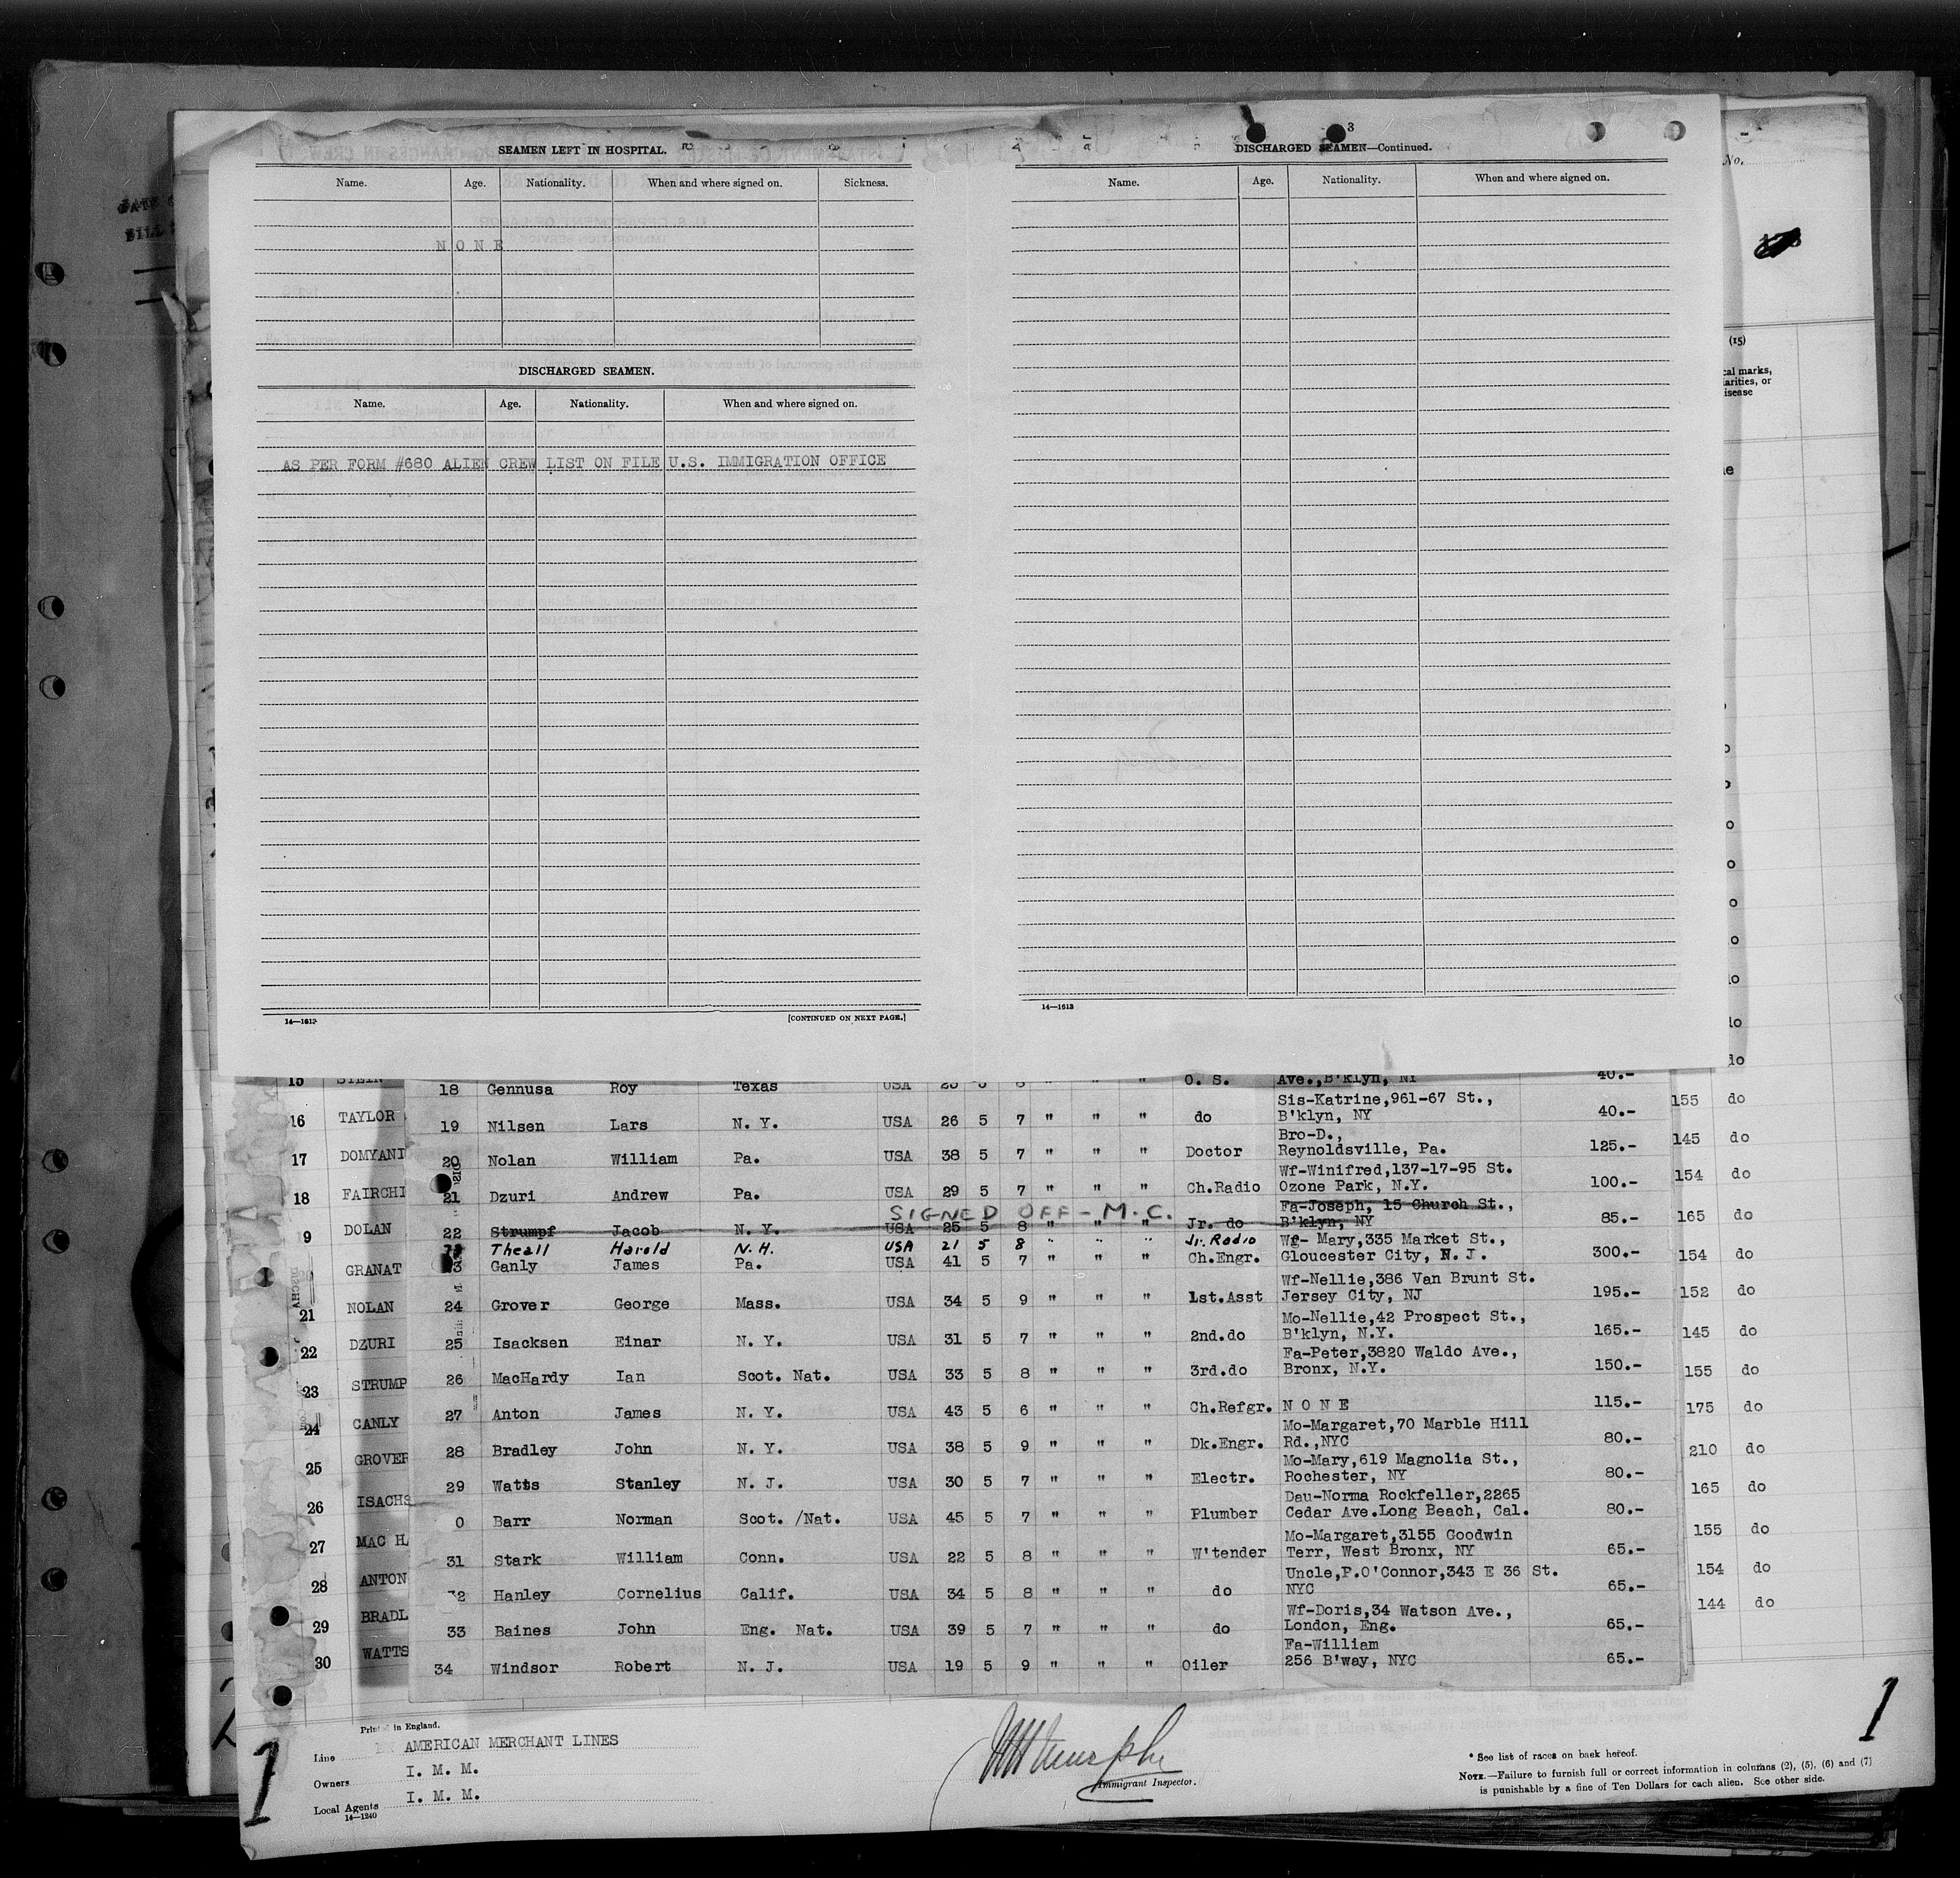 3
SEAMEN LEFT IN HOSPITAL.
Name. Age. Nationality. When and where signed on. Sickness.
NONE
DISCHARGED SEAMEN.
Name. Age. Nationality. When and where signed on.
AS PER FORM #680 ALIEN CREW LIST ON FILE U.S. IMMIGRATION OFFICE
14—1613
[CONTINUED ON NEXT PAGE.]
DISCHARGED SEAMEN—Continued.
Name. Age. Nationality. When and where signed on.
14—1613
No.
(15)
18 Gennusa Roy Texas USA " " " O. S. Ave.,B'klyn, NY 40.-
Sis-Katrine,961-67 St.,
16 TAYLOR 19 Nilsen Lars N. Y. USA 26 5 7 " " " do B'klyn, NY 40.- 155 do
Bro-D.,
17 DOMYANI 20 Nolan William Pa. USA 38 5 7 " " " Doctor Reynoldsville, Pa. 125.- 145 do
Wf-Winifred,137-17-95 St.
18 FAIRCHI 21 Dzuri Andrew Pa. USA 29 5 7 " " " Ch.Radio Ozone Park, N.Y. 100.- 154 do
SIGNED OFF - M.C.
Fa-Joseph, 15 Church St.,
9 DOLAN 22 Strumpf Jacob N. Y. USA 25 5 8 " " " Jr. do B'klyn, NY 85.- 165 do
Theall Harold N.H. USA 21 5 8 " " " Jr. Radio Wf- Mary,335 Market St.,
GRANAT 3 Ganly James Pa. USA 41 5 7 " " " Ch.Engr. Gloucester City, N.J. 300.- 154 do
Wf-Nellie,386 Van Brunt St.
21 NOLAN 24 Grover George Mass. USA 34 5 9 " " " 1st.Asst Jersey City, NJ 195.- 152 do
Mo-Nellie,42 Prospect St.,
22 DZURI 25 Isacksen Einar N. Y. USA 31 5 7 " " " 2nd.do B'klyn, N.Y. 165.- 145 do
Fa-Peter,3820 Waldo Ave.,
23 STRUMP 26 MacHardy Ian Scot. Nat. USA 33 5 8 " " " 3rd.do Bronx, N.Y. 150.- 155 do
24 CANLY 27 Anton James N. Y. USA 43 5 6 " " " Ch.Refgr. NONE 115.- 175 do
Mo-Margaret,70 Marble Hill
25 GROVER 28 Bradley John N. Y. USA 38 5 9 " " " Dk.Engr. Rd.,NYC 80.- 210 do
Mo-Mary,619 Magnolia St.,
26 ISACHS 29 Watts Stanley N. J. USA 30 5 7 " " " Electr. Rochester, NY 80.- 165 do
Dau-Norma Rockfeller,2265
27 MAC HA 0 Barr Norman Scot. /Nat. USA 45 5 7 " " " Plumber Cedar Ave.Long Beach, Cal. 80.- 155 do
Mo-Margaret,3155 Goodwin
28 ANTON 31 Stark William Conn. USA 22 5 8 " " " W'tender Terr, West Bronx, NY 65.- 154 do
Uncle,P.O'Connor,343 E 36 St.
29 BRADL 32 Hanley Cornelius Calif. USA 34 5 8 " " " do NYC 65.- 144 do
Wf-Doris,34 Watson Ave.,
30 WATTS 33 Baines John Eng. Nat. USA 39 5 7 " " " do London, Eng. 65.-
Fa-William
34 Windsor Robert N. J. USA 19 5 9 " " " Oiler 256 B'way, NYC 65.-
Printed in England.
Line AMERICAN MERCHANT LINES
Owners I. M. M.
Local Agents I. M. M.
14—1240
Immigrant Inspector.
* See list of races on back hereof.
NOTE.—Failure to furnish full or correct information in columns (2), (5), (6) and (7)
is punishable by a fine of Ten Dollars for each alien. See other side.
1
1